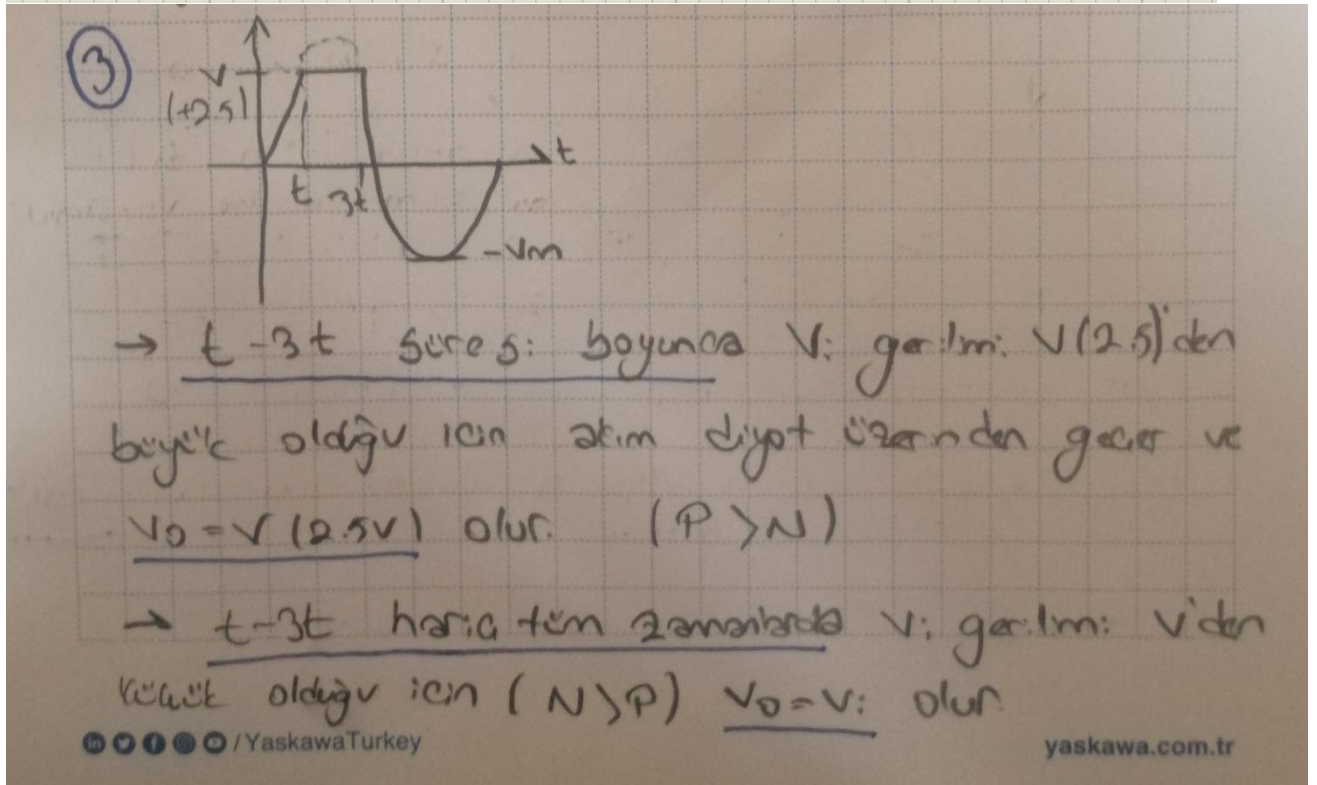 3
V
(+2.5)
t
t 3t
-Vm
→ t-3t süresi boyunca Vi gerilimi V(2.5)'den
büyük olduğu için akım diyot üzerinden geçer ve
Vo = V (2.5V) olur. (P > N)
→ t-3t hariç tüm zamanlarda Vi gerilimi V'den
küçük olduğu için (N > P) Vo = Vi olur.
/YaskawaTurkey
yaskawa.com.tr